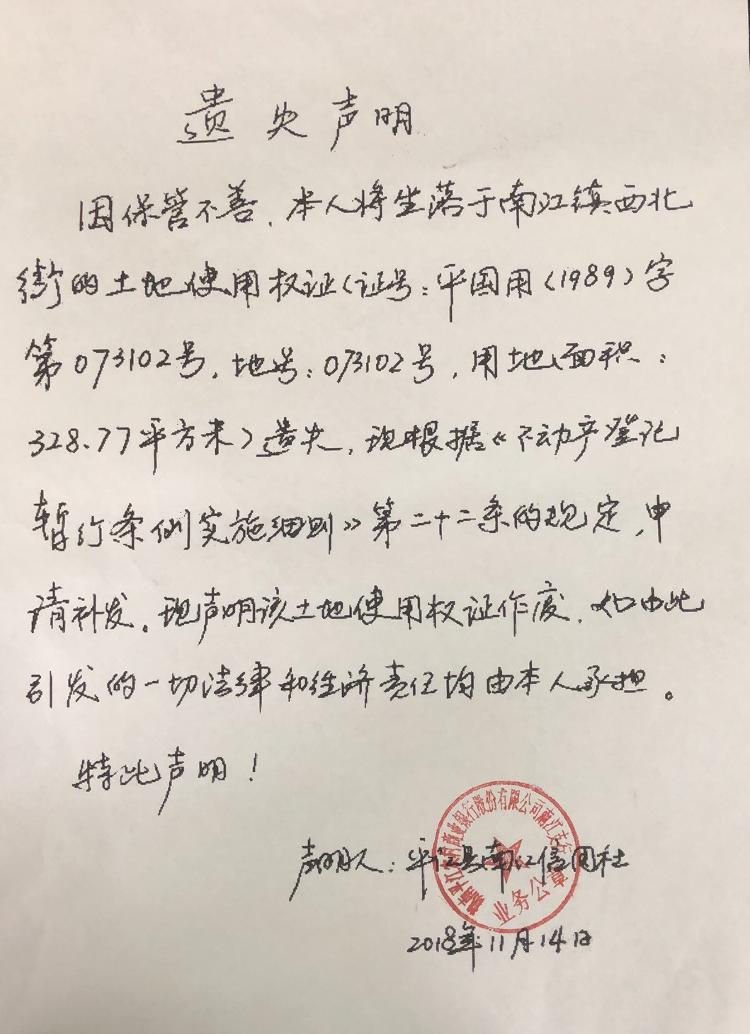 遗失声明
因保管不善，本人将坐落于南江镇西北
街的土地使用权证（证号：平国用（1989）字
第073102号，地号：073102号，用地面积：
328.77平方米）遗失，现根据《不动产登记
暂行条例实施细则》第二十二条的规定，申
请补发。现声明该土地使用权证作废，如由此
引发的一切法律和经济责任均由本人承担。
特此声明！
声明人：平江县南江信用社
2018年11月14日
湖南平江农村商业银行股份有限公司南江支行
业务公章